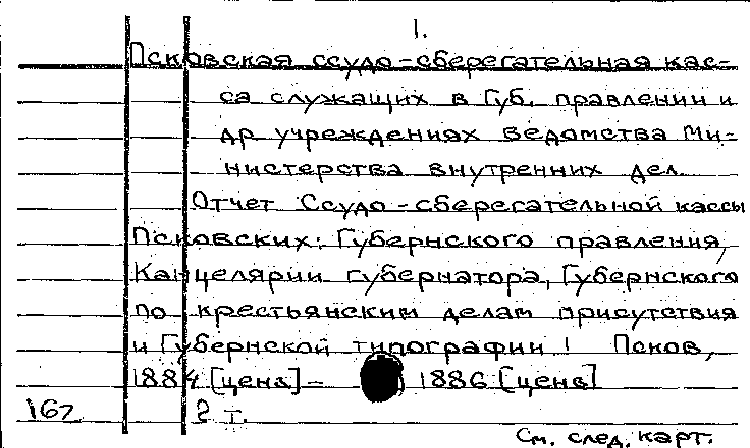 1.
Псковская ссудо-сберегательная кас-
са служащих в Губ. правлении и
др учреждениях ведомства Ми-
нистерства внутренних дел.
Отчет Ссудо-сберегательной кассы
Псковских: Губернского правления,
Канцелярии губернатора, Губернского
по крестьянским делам присутствия
и Губернской типографии! Псков,
1884 [цена] - 1886 [цена]
167 2 т.
См. след. карт.